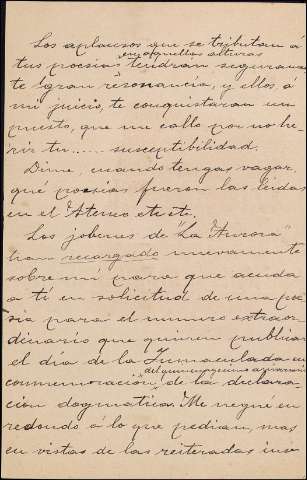 Los aplausos que se tributan á
en aquellas alturas
tus poesías tendrán seguramen
te gran resonancia, y ellos á
mi juicio, te conquistarán un
puesto, que me callo por no he
rir tu...... susceptibilidad.
Dime, cuando tengas vagar,
qué poesías fueron las leidas
en el Ateneo etc etc.
Los jobenes de "La Aurora"
han recargado nuevamente
sobre mí para que acuda
a tí en solicitud de una poe
sía para el número extraor
dinario que quieren publicar
el día de la Inmaculada en
del quincuagésimo aniversario
conmemoración, de la declara
ción dogmática. Me negué en
redondo á lo que pedían, mas
en vistas de las reiteradas ins